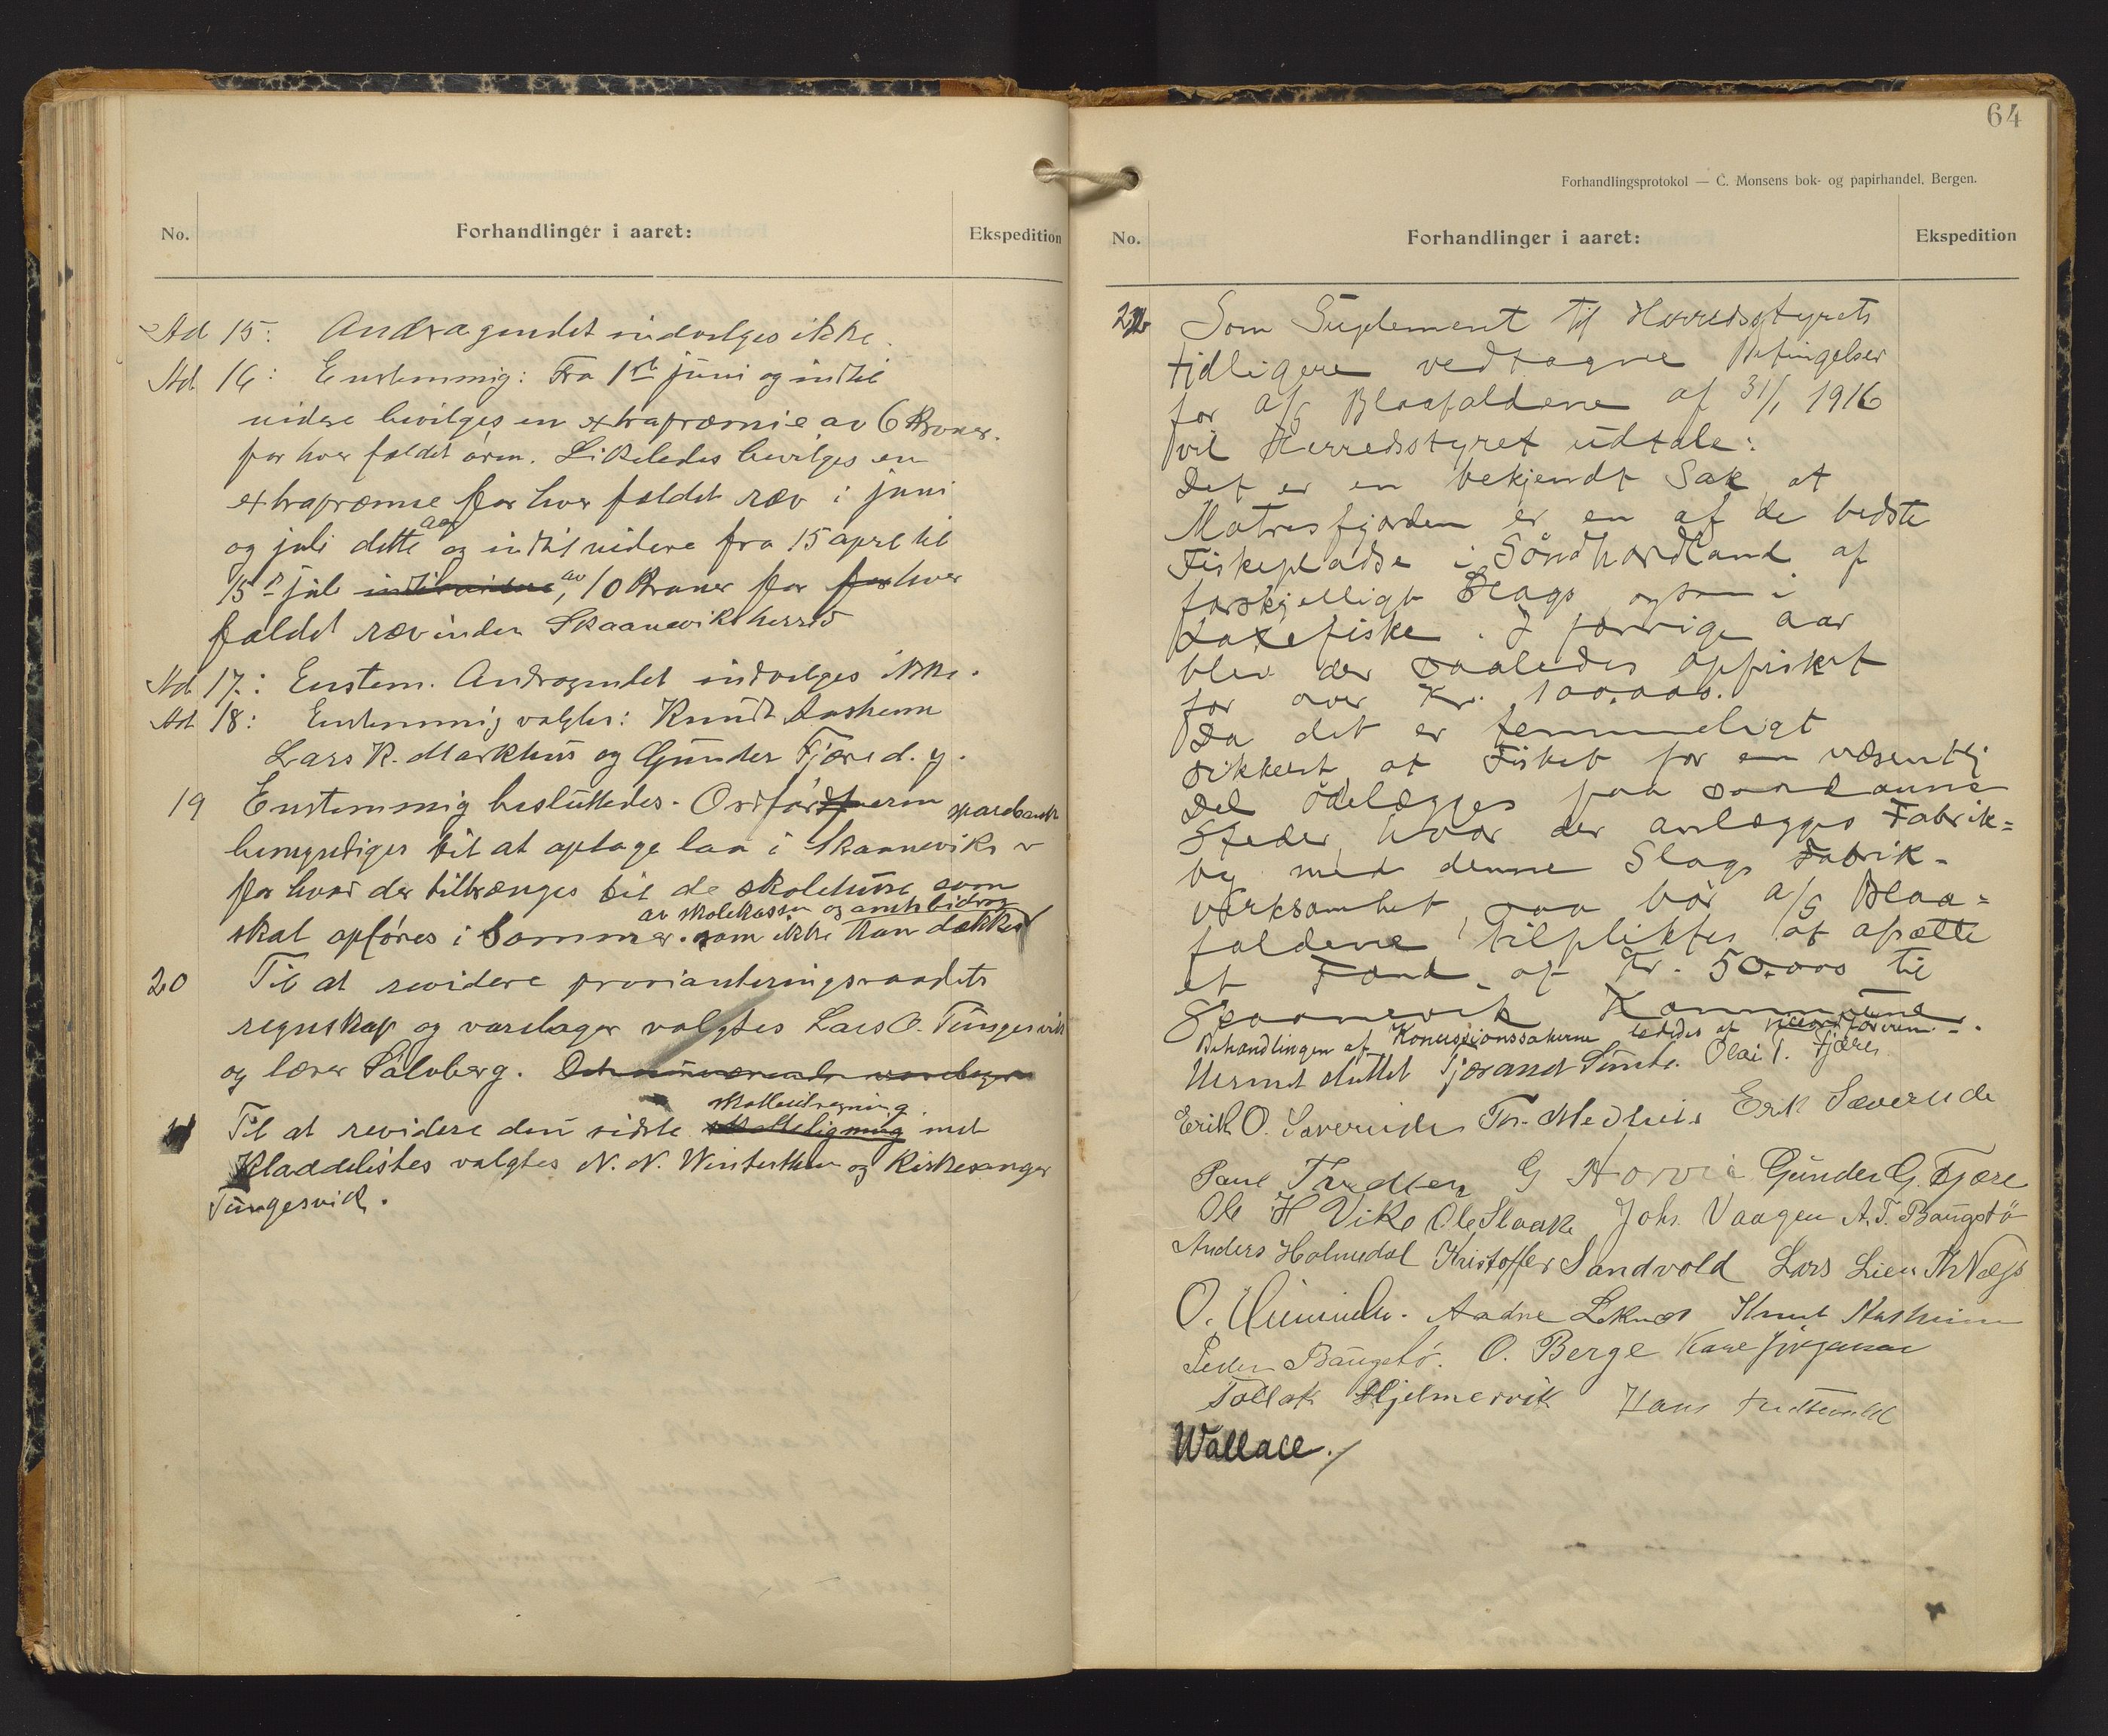 No.
Forhandlinger i aaret:
Ekspedition
Ad 15: Andragendet indvilges ikke.
Ad 16: Enstemmig: Fra 1ste juni og indtil
videre bevilges en extrapræmie av 6 Kroner
for hver fældet ørn. Likeledes bevilges en
extrapræmie for hver fældet ræv i juni
og juli dette aar og indtil videre fra 15 april til
15de juli indtil videre, av 10 Kroner for for hver
fældet ræv inden Skaanevik herred
Ad 17: Enstem. Andragendet indvilges ikke.
Ad 18: Enstemmig valgtes: Knudt Aasheim
Lars K. Markhus og Gunder Fjære d. y.
19 Enstemmig besluttedes. Ordføreren
bemyndiges til at optage laan i Skaaneviks sparebank
for hvad der tiltrænges til de skolehuse som
skal opføres i Sommer. som ikke kan dækkes
av skolekassen og amtsbidrag
20 Til at revidere provianteringsraadets
regnskap og varelager valgtes Lars O. Tungesvik
og lærer Salvberg. Det nuværende varelager
21 Til at revidere den sidste skatteligning med
skatteutregning
Kladdelistes valgtes N. N. Winterthun og Kirkesanger
Tungesvik.
64
Forhandlingsprotokol — C. Monsens bok- og papirhandel, Bergen.
No.
Forhandlinger i aaret:
Ekspedition
22 Som Suplement til Herredsstyrets
tidligere vedtagne Betingelser
for a/s Blaafaldene af 31/1 1916
vil Herredsstyret udtale:
Det er en bekjendt Sak at
Matresfjorden er en af de bedste
Fiskepladse i Söndhordland af
forskjelligt Slags, ogsaa i
Laxefiske. I forrige aar
blev der saaledes opfisket
for over Kr. 100.000.
Da det er temmeligt
sikkert at Fisket for en væsentlig
Del ödelægges paa saadanne
Steder hvor der anlægges Fabrik=
by med denne Slags Fabrik-
virksomhet, saa bör a/s Blaa=
faldene tilpliktes at afsætte
et Fond af Kr. 50.000 til
Skaanevik Kommune
Behandlingen af Koncessionssakerne lededes af viceordføreren.
Hermed sluttet Tjærand Simte. Olai T. Fjære
Erik O. Sæverude Th. Medhus Erik Sæverude
Paul Tredten G Horvei Gunder G. Fjære
Ole H Vike Ole Slaake Johs. Vaagen A. T. Baugstö
Anders Holmedal Kristoffer Sandvold Lars Lien Th Næss
O. Adne Eknes Knut Aasheim
Peder Baugstö. O. Berge Kare Jörgensen
Tollak Hjelmervik Hans
Wallace.